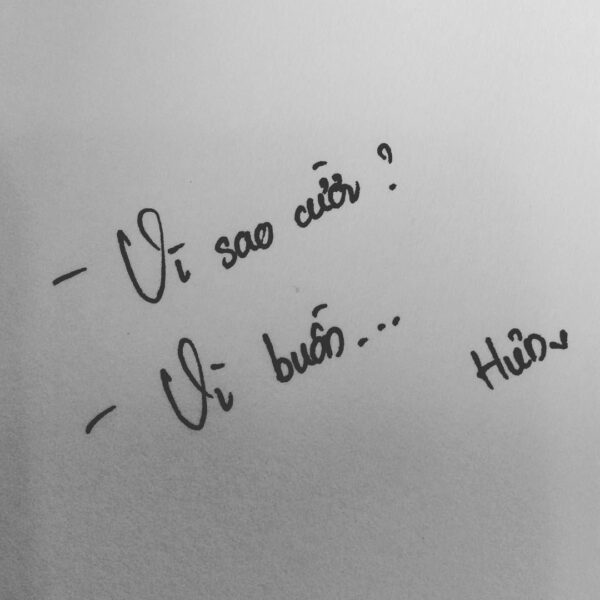 - Vì sao cười?
- Vì buồn...